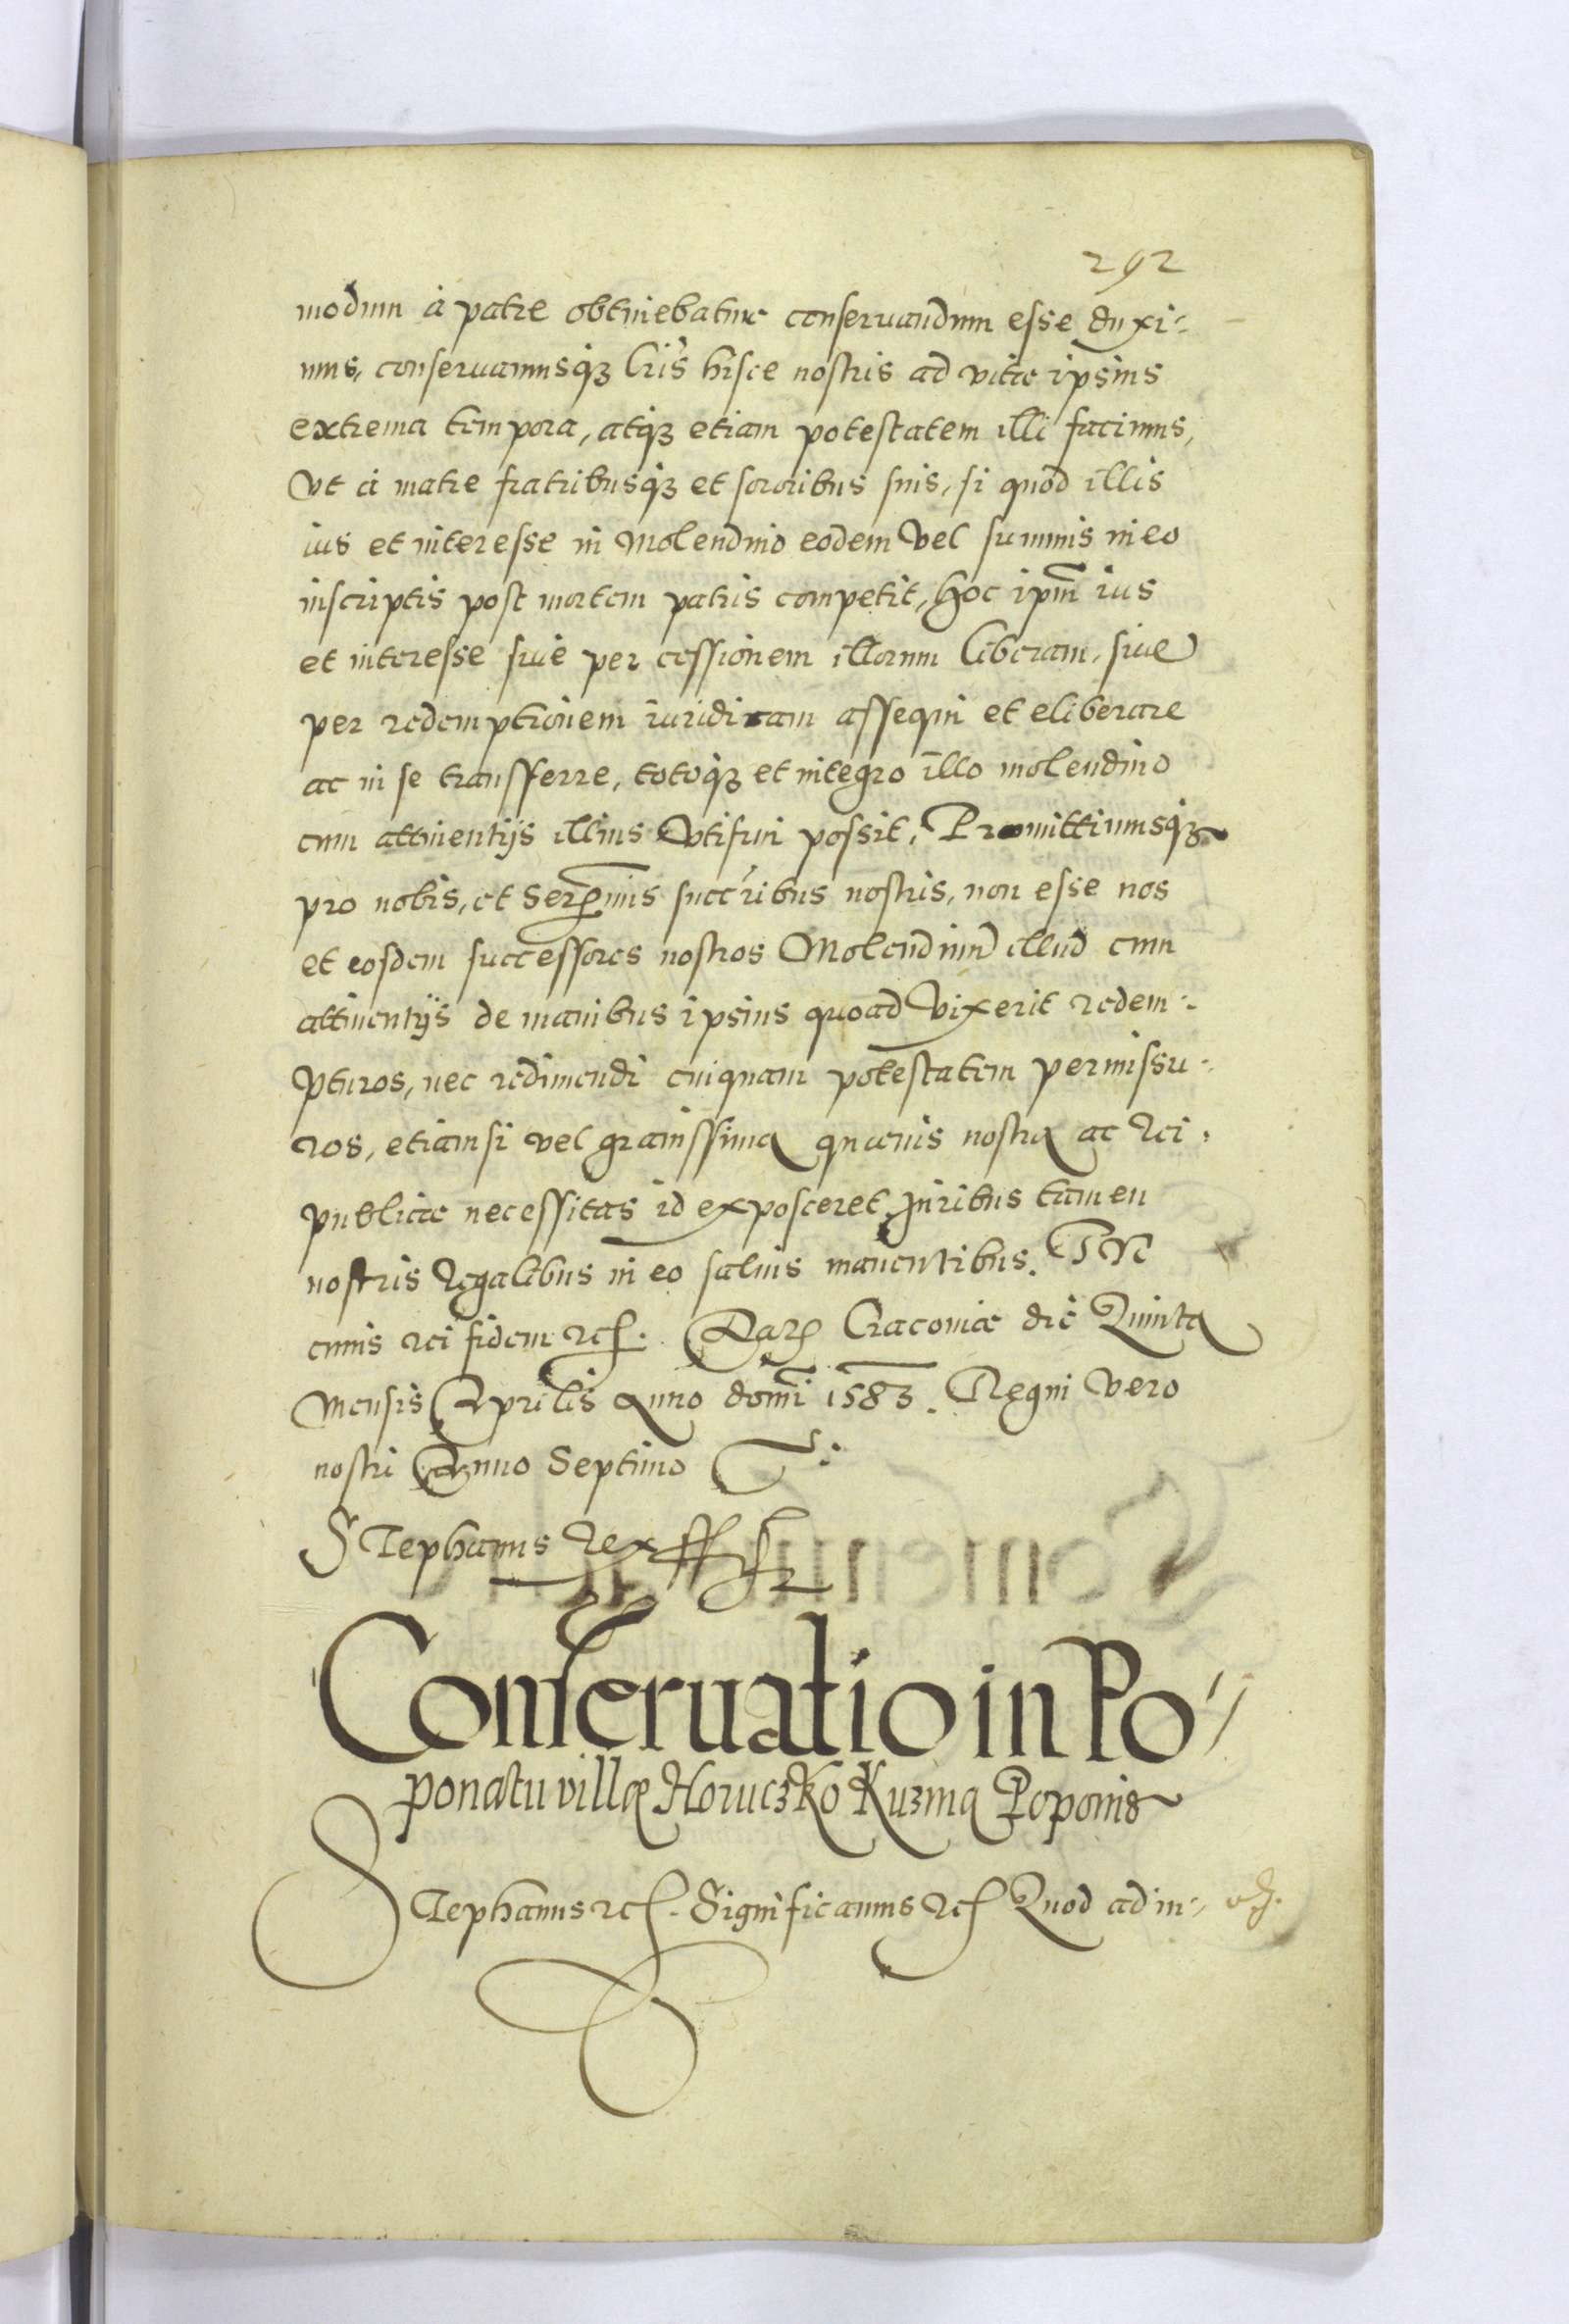 292
modum à patre obtinebatur conseruandum esse duxi-
mus, conseruamusq3 Lris hisce nostris ad vitæ ipsius
extrema tempora, atq3 etiam potestatem illi facimus,
Vt à matre fratribusq3 et sororibus suis, si quod illis
ius et interesse in Molendino eodem Vel summis in eo
inscriptis post mortem patris competit, hoc ipm ius
et interesse siue per cessionem illorum liberam, siue
per redemptionem iuridicam assequi et eliberare
ac in se transferre, totoq3 et integro illo molendino
cum attinentijs illius Vtifrui possit. Promittimusq3
pro nobis, et Serenmis succribus nostris, non esse nos
et eosdem successores nostros Molendinum illud cum
attinentijs de manibus ipsius quoad Vixerit redem-
pturos, nec redimendi cuiquam potestatem permissu-
ros, etiamsi vel grauissima quæuis nostra ac Rei
publicæ necessitas id exposceret, Juribus tamen
nostris Regalibus in eo saluis manentibus. In
cuius rei fidem etc. Dat Cracouiæ die Quinta
Mensis Aprilis Anno domi 1583. Regni Vero
nostri Anno Septimo
Stephanus Rex
Conseruatio in Po-
ponatu villæ Horuczko Kuzma Poponis
Stephanus etc. Significamus etc Quod ad in-